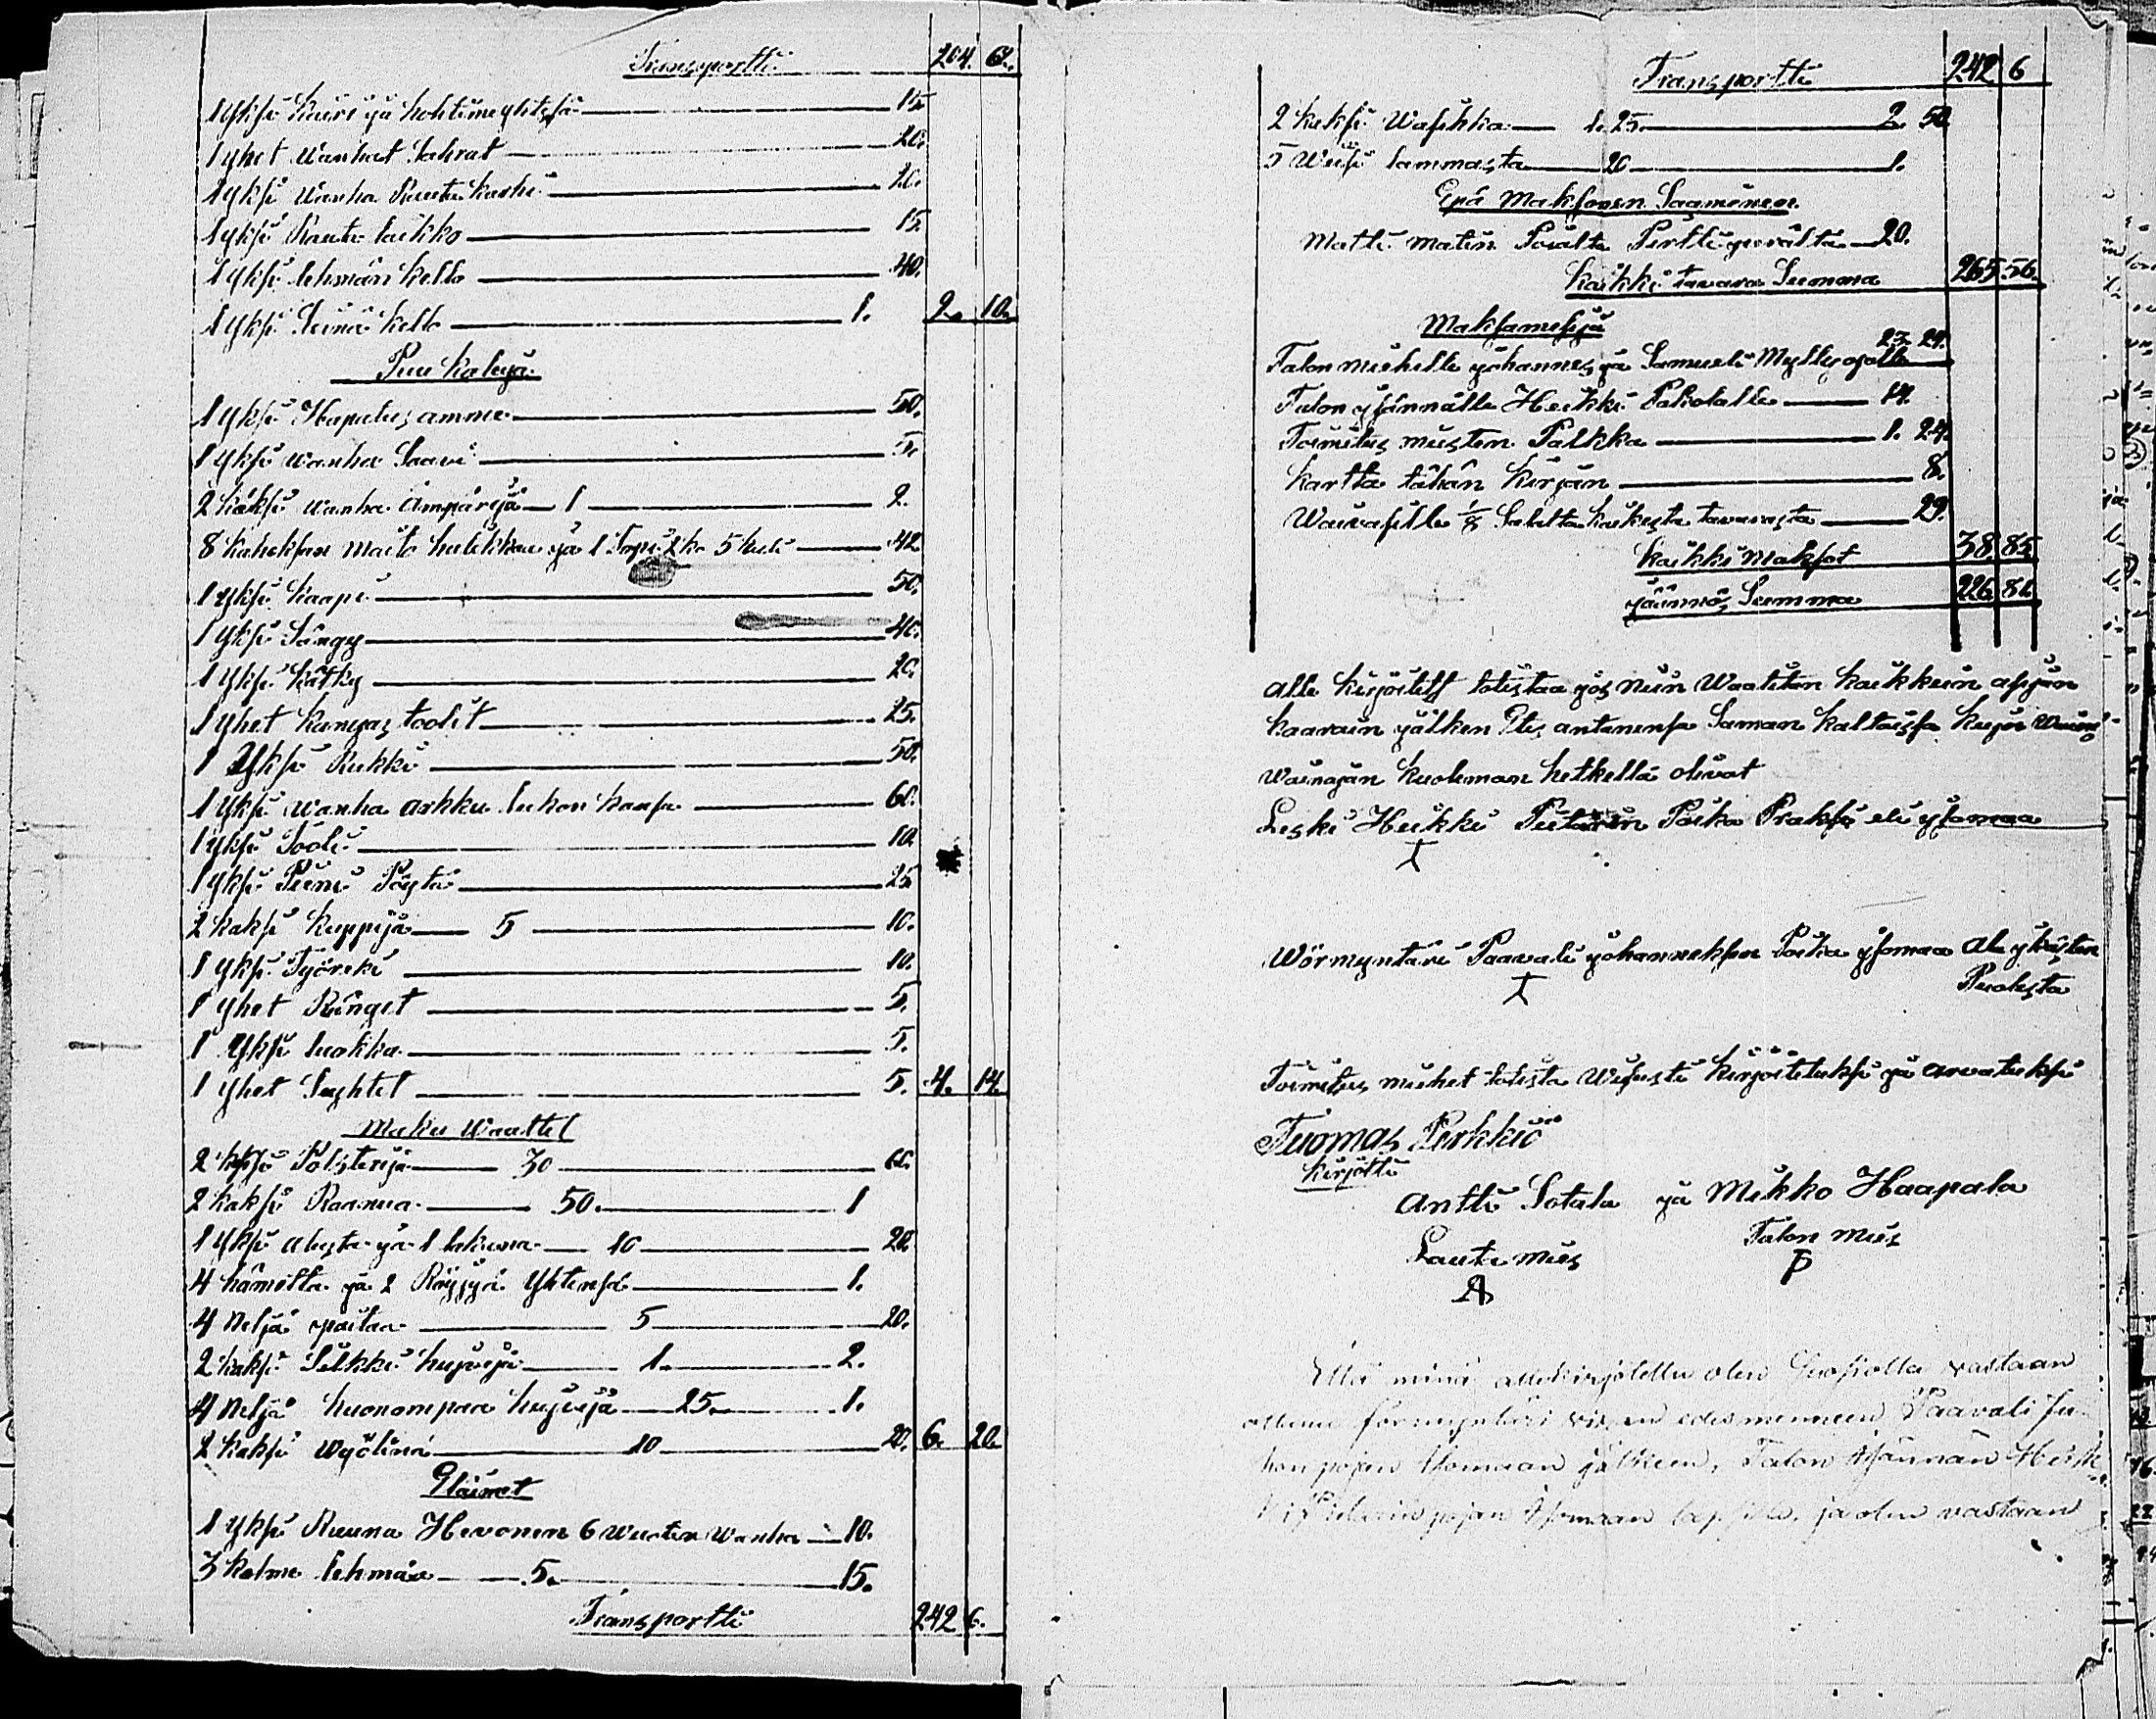 Transportti 204. 62.
1 Yksi kiiri ja kohtimeylitsjä 15
1 yhet Wanhat Sahrat 20.
1 yksi Wanha Rauta kanki 20.
1 yksi Rauta laikko 15.
1 yksi lehmän kello 40.
1 yksi Seinä kello 1. 2. 10.
Puu kaluja
1 yksi Hapatus amme 50.
1 yksi wanha Saavi 5.
2 kaksi wanha Ämpärijä 1 2.
8 kaheksan maito hulikkaa ja 1 5 42
1 yksi kaapi 50.
1 yksi Sängy 40.
1 yksi kätky 20.
1 yhet kangas toolit 25.
1 Yksi Rukki 50.
1 yksi wanha arkku lukon kansa 60.
1 yksi Tooli 10.
1 yksi Pieni Pöytä 25
2 kaksi kuppija 5 10.
1 yksi Työreki 10.
1 yhet Ränget 5.
1 Yksi luokka 5.
1 yhet Sughtet 5. 4. 14.
Maku Waattet
2 kaksi Polsterija 30 60.
2 kaksi Raanua 50. 1
1 yksi alusta ja 1 lakana 10 20.
4 hametta ja 2 Röyjyä yhtensä 1.
4 Neljä paitaa 5 20.
2 kaksi Silkki huivijä 1. 2.
4 Neljä huonompaa huivijä 25. 1.
2 kaksi wyöliinä 10 20. 6. 20.
Eläimet
1 yksi Ruuna Hevonen 6 wuoten Wanha 10.
3 kolme lehmää 5. 15.
Transportti 242 6.
Transportti 242 6
2 kaksi Wasikka 1.25. 2. 50
5 Wiisi lammasta 20 1.
Epä Maksonen Saaminen
Matti Matin Poialta Perttiperältä 20.
kaikki tavara Summa 265. 56.
Maksamisija
23. 24.
Talon miehille johannes ja Samueli Myllyojalle
Talon ysännälle Heikki Pakolalle 14.
Toimitus miesten Palkka 1. 24.
kartta tähän kirjan 8.
Waivasille 1/8 Salatta kaikesta tavarasta 29.
kaikki Maksot 38. 85.
jäännös Summa 226. 81.
alle kirjoitett totistaa jos niin Waatitan kaikkein assjan
haarain jälken Ites antanensa Saman kaltaissa kuin
wainajan kuoleman hetkellä olivat
Leski Heikki Pietarin Poika Praksi eli ysomaa
Wörmyntäri Paavali johanneksen Poika ysomaa Ala ykäisten
Puolesta
Toimitus miehet totista Wisusti kirjoitetuksi ja arvatuksi
Tuomas Perkkiö
kirjotti
Antti Sotala ja Mikko Haapala
Lauta mies Talon mies
Että minä allekirjotettu olen Suosiolla vastaan
ottanu förmyntäri viran edesmenneen Paavali Ju-
hon pojan Ysomaan jälkeen, Talon Isännän Heik
ki Pietarin pojan Ysomaan lapsille, ja olen vastaan